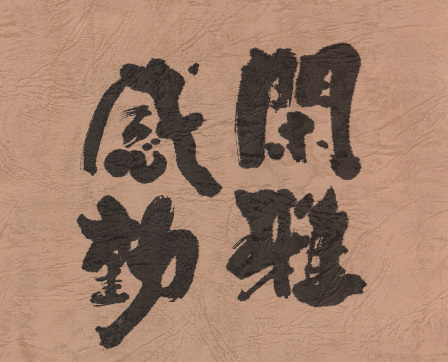 閑雅
感動